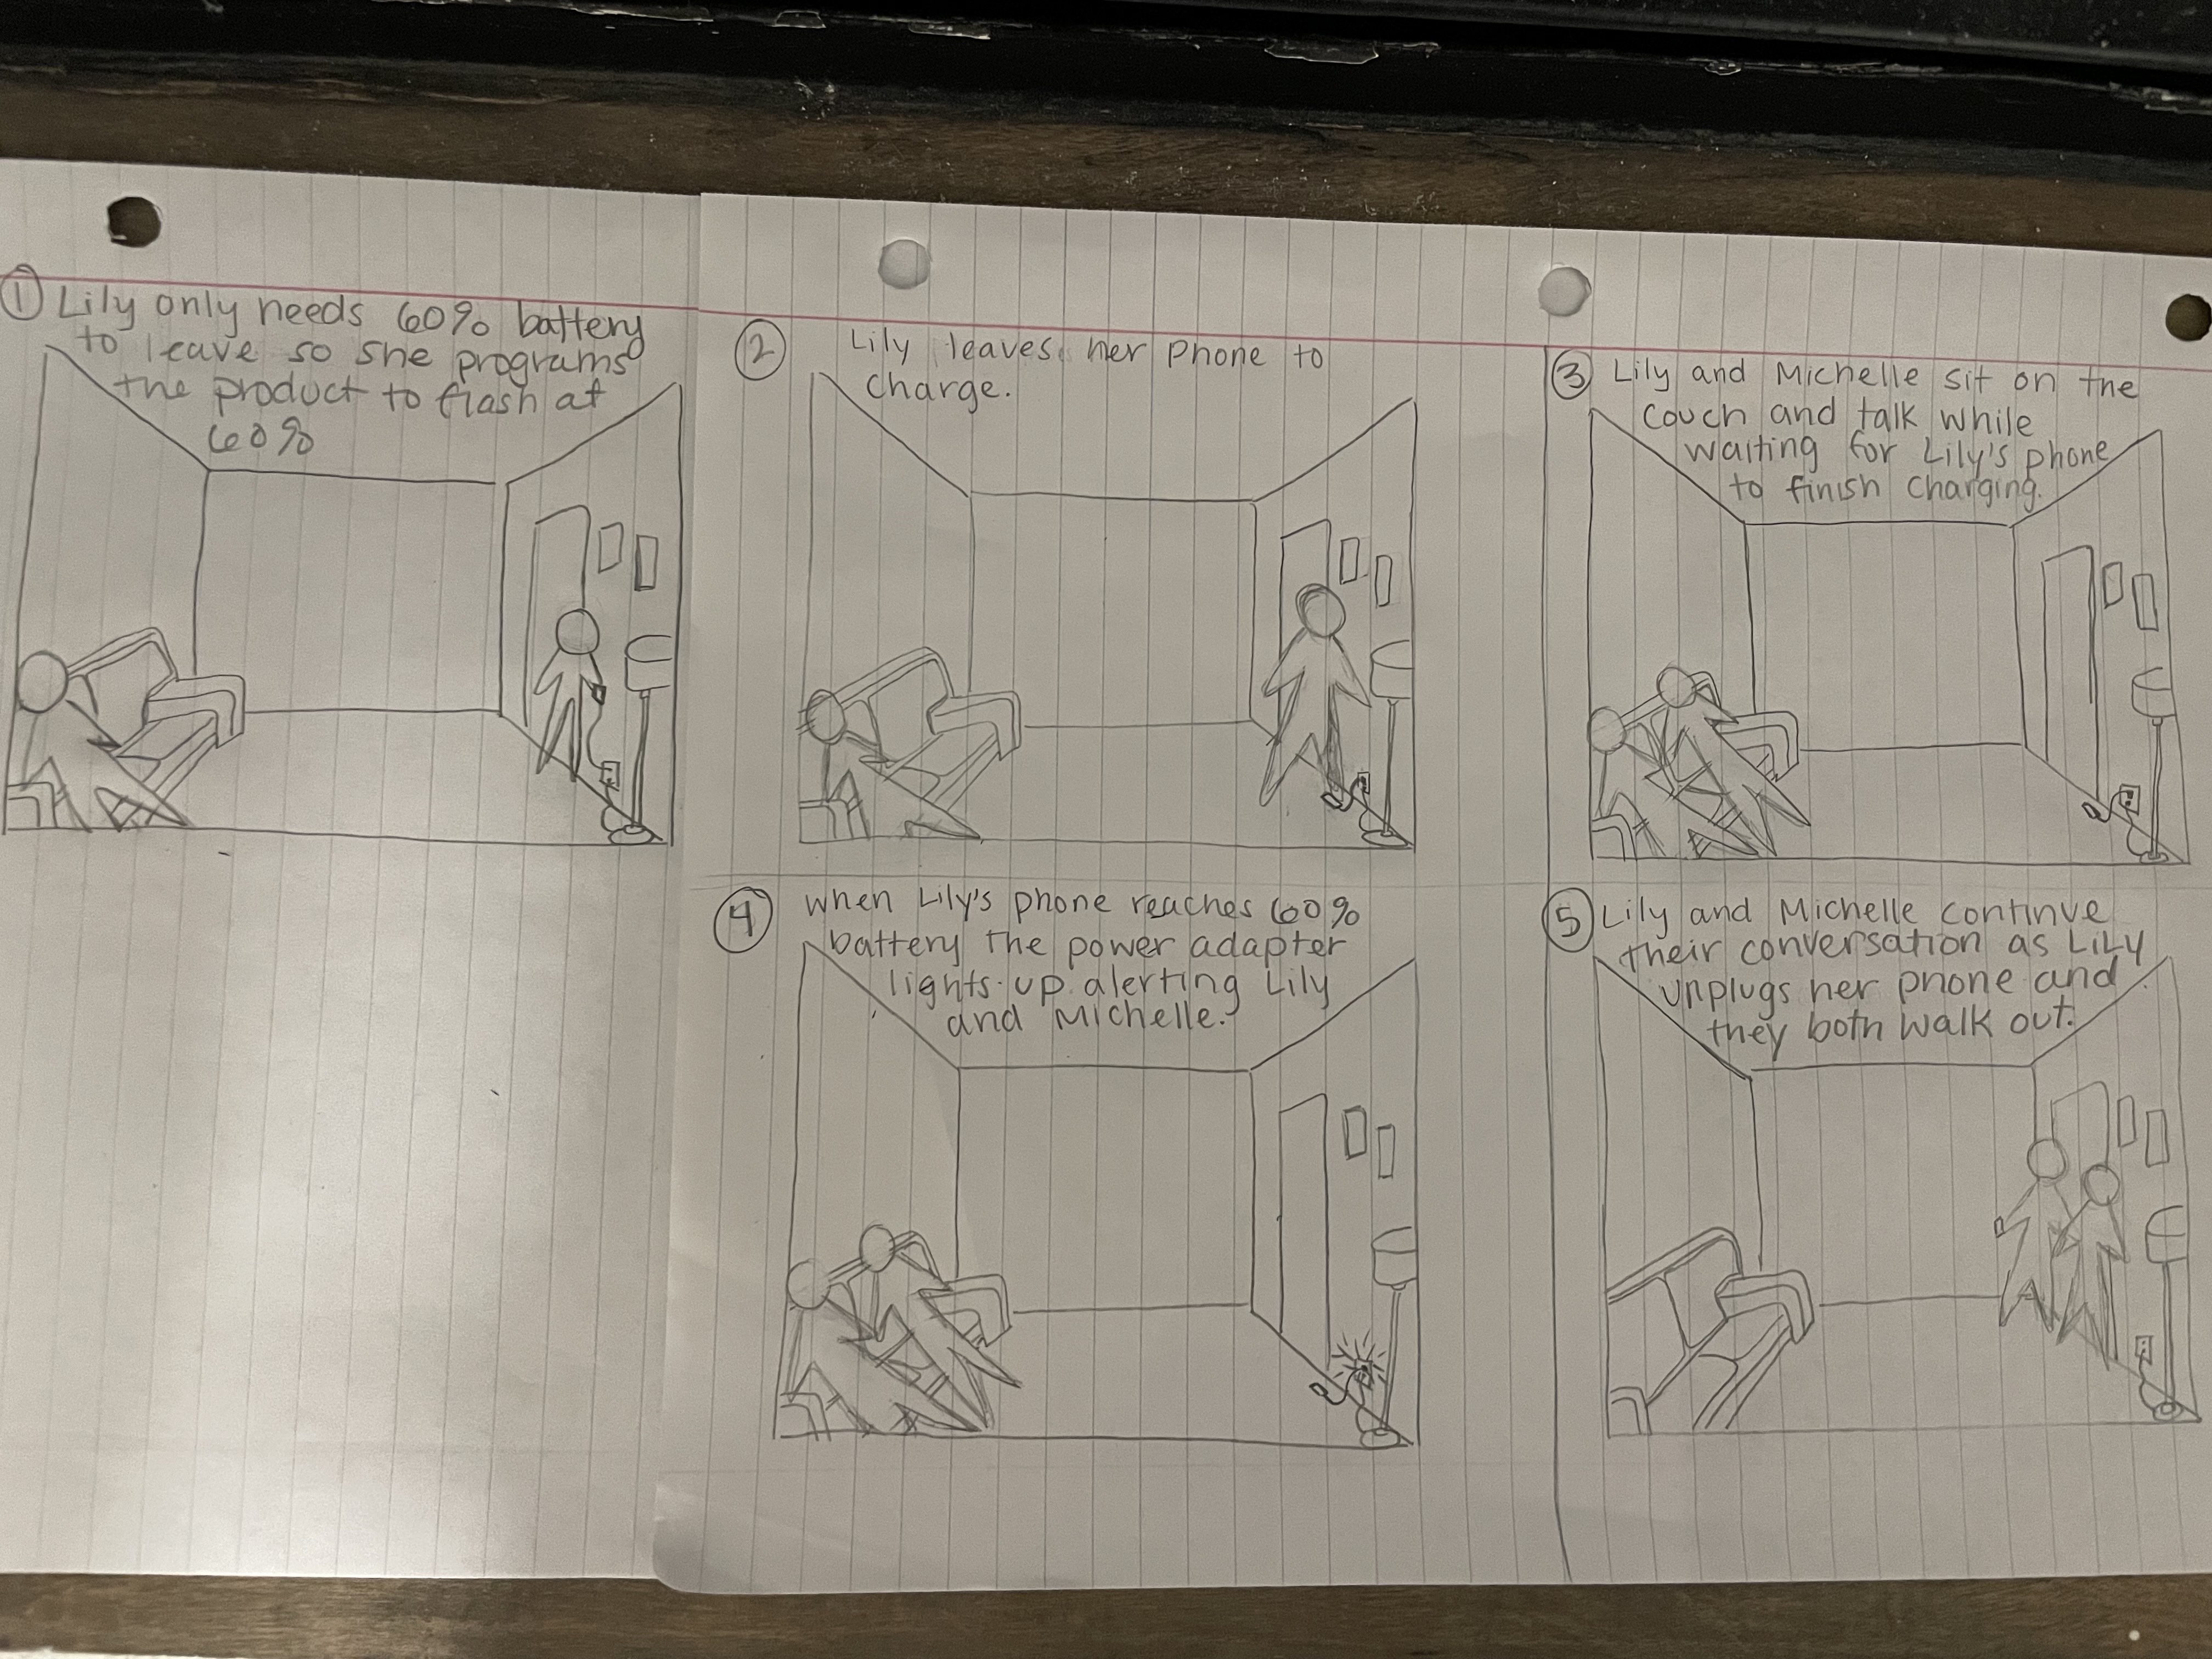 ① Lily only needs 60% battery
to leave so she programs
the product to flash at
60%
② Lily leaves her phone to
charge.
③ Lily and Michelle sit on the
couch and talk while
waiting for Lily's phone
to finish charging.
④ When Lily's phone reaches 60%
battery the power adapter
lights up alerting Lily
and Michelle.
⑤ Lily and Michelle continue
their conversation as LiLy
unplugs her phone and
they both walk out.